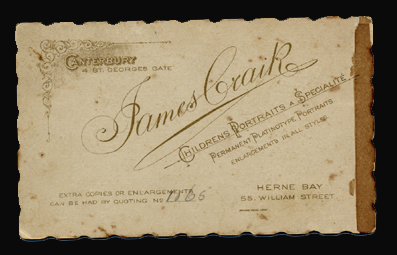 CANTERBURY
4 ST. GEORGES GATE
James Craik
CHILDRENS PORTRAITS A SPECIALITÉ
PERMANENT PLATINOTYPE PORTRAITS
ENLARGEMENTS IN ALL STYLES
EXTRA COPIES OR ENLARGEMENTS
CAN BE HAD BY QUOTING NO
HERNE BAY
55, WILLIAM STREET